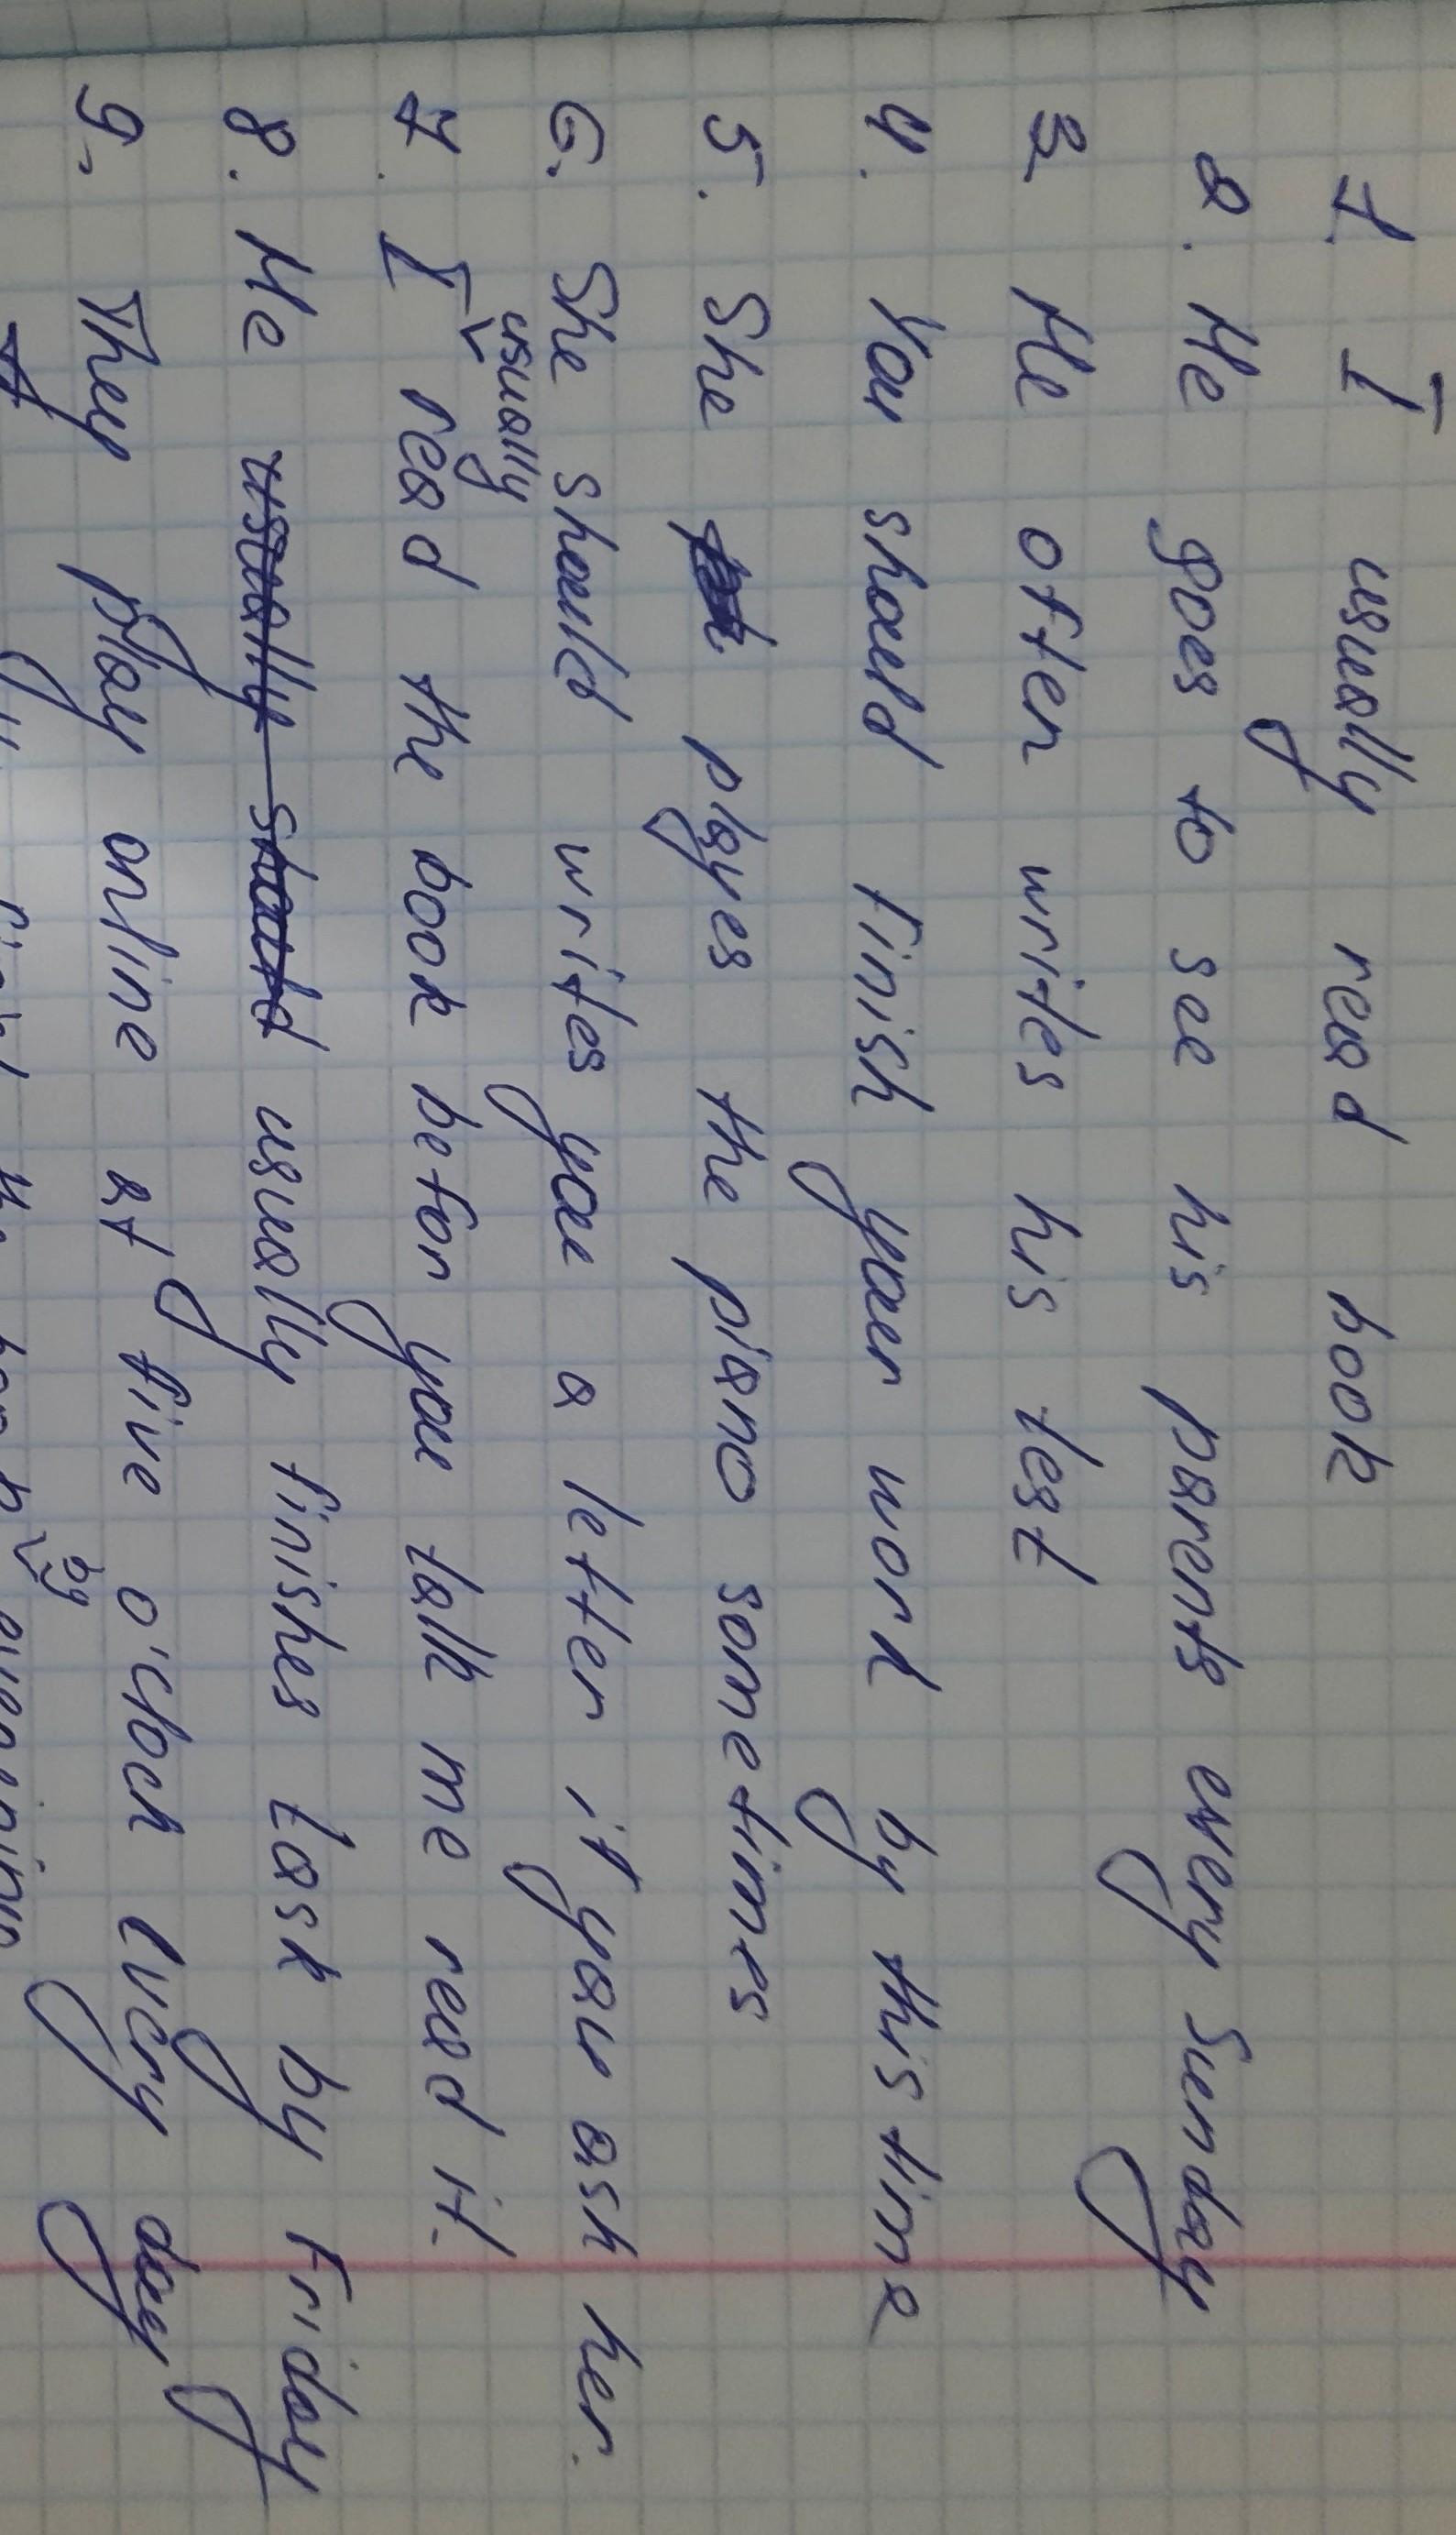 1. I usually read book
2. He goes to see his parents every Sunday
3. He often writes his test
4. You should finish your work by this time
5. She playes the piano sometimes
6. She should writes you a letter if you ask her.
7. I usually read the book befor you talk me read it.
8. He usually should usually finishes task by Friday
9. They play online at five o'clock every day